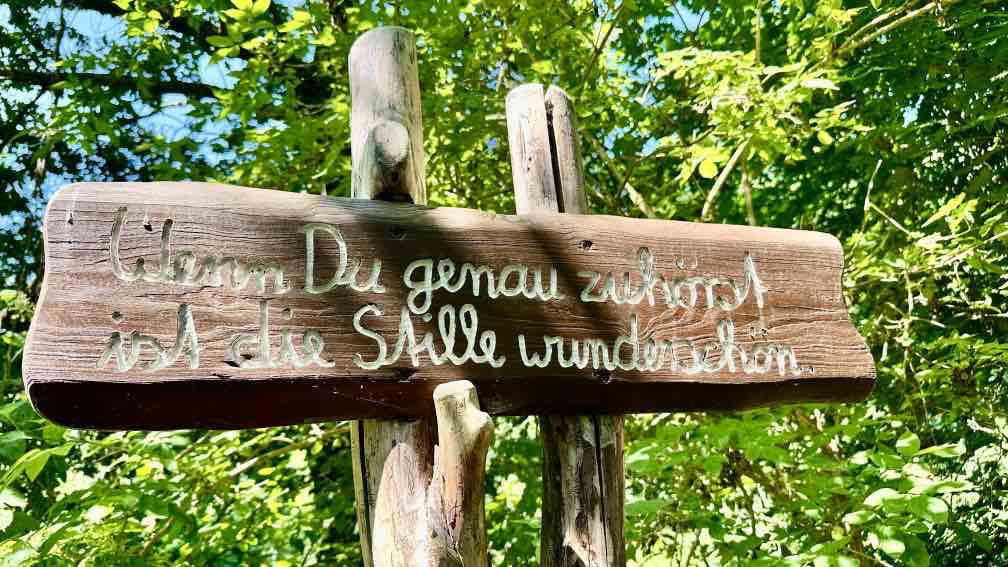 Wenn Du genau zuhörst
ist die Stille wunderschön.